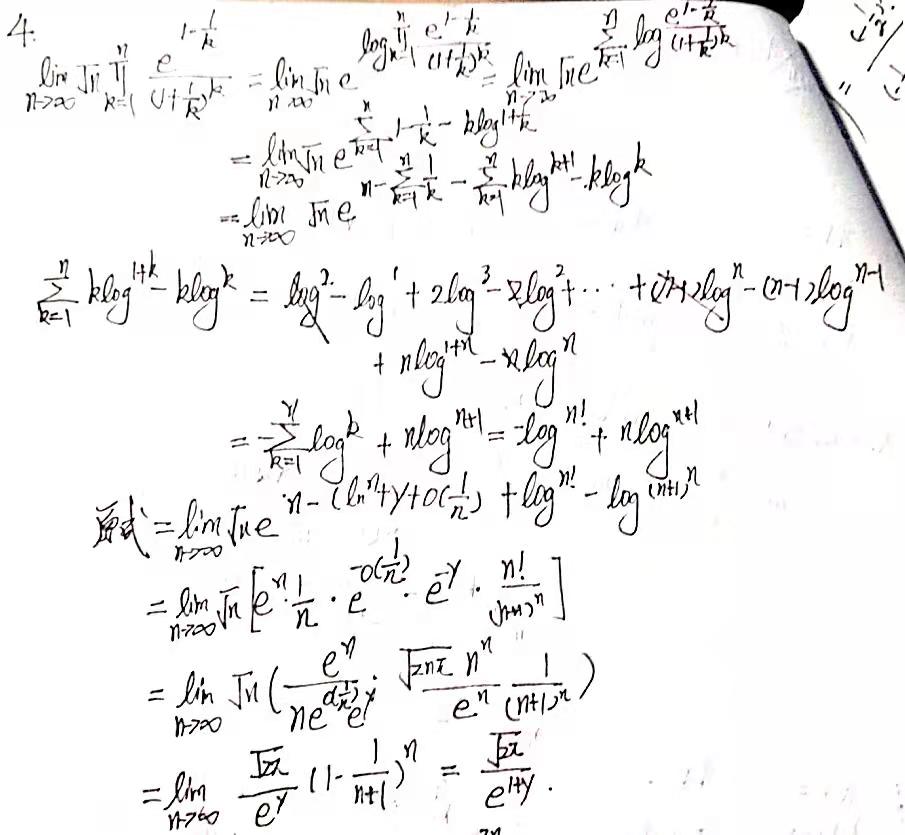 4.
lim_{n→∞} √n ∏_{k=1}^{n} e^{1-1/k}/(1+1/k)^k = lim_{n→∞} √n e^{log ∏_{k=1}^{n} e^{1-1/k}/(1+1/k)^k} = lim_{n→∞} √n e^{∑_{k=1}^{n} log e^{1-1/k}/(1+1/k)^k}
= lim_{n→∞} √n e^{∑_{k=1}^{n} 1-1/k - k log^{1+1/k}}
= lim_{n→∞} √n e^{n-∑_{k=1}^{n} 1/k - ∑_{k=1}^{n} k log^{k+1} - k log^k}
∑_{k=1}^{n} k log^{1+k} - k log^k = log^2 - log^1 + 2log^3 - 2log^2 + ⋯ + (n-1)log^n - (n-1)log^{n-1}
+ n log^{1+n} - n log^n
= -∑_{k=1}^{n} log^k + n log^{n+1} = -log^{n!} + n log^{n+1}
原式 = lim_{n→∞} √n e^{n-(ln^n+γ+o(1/n)) + log^{n!} - log^{(n+1)^n}}
= lim_{n→∞} √n [e^n · 1/n · e^{-o(1/n)} · e^{-γ} · n!/(n+1)^n]
= lim_{n→∞} √n (e^n/(n e^{o(1/n)} e^γ) · √(2nπ) n^n/e^n · 1/(n+1)^n)
= lim_{n→∞} √(2π)/e^γ (1 - 1/(n+1))^n = √(2π)/e^{1+γ}.